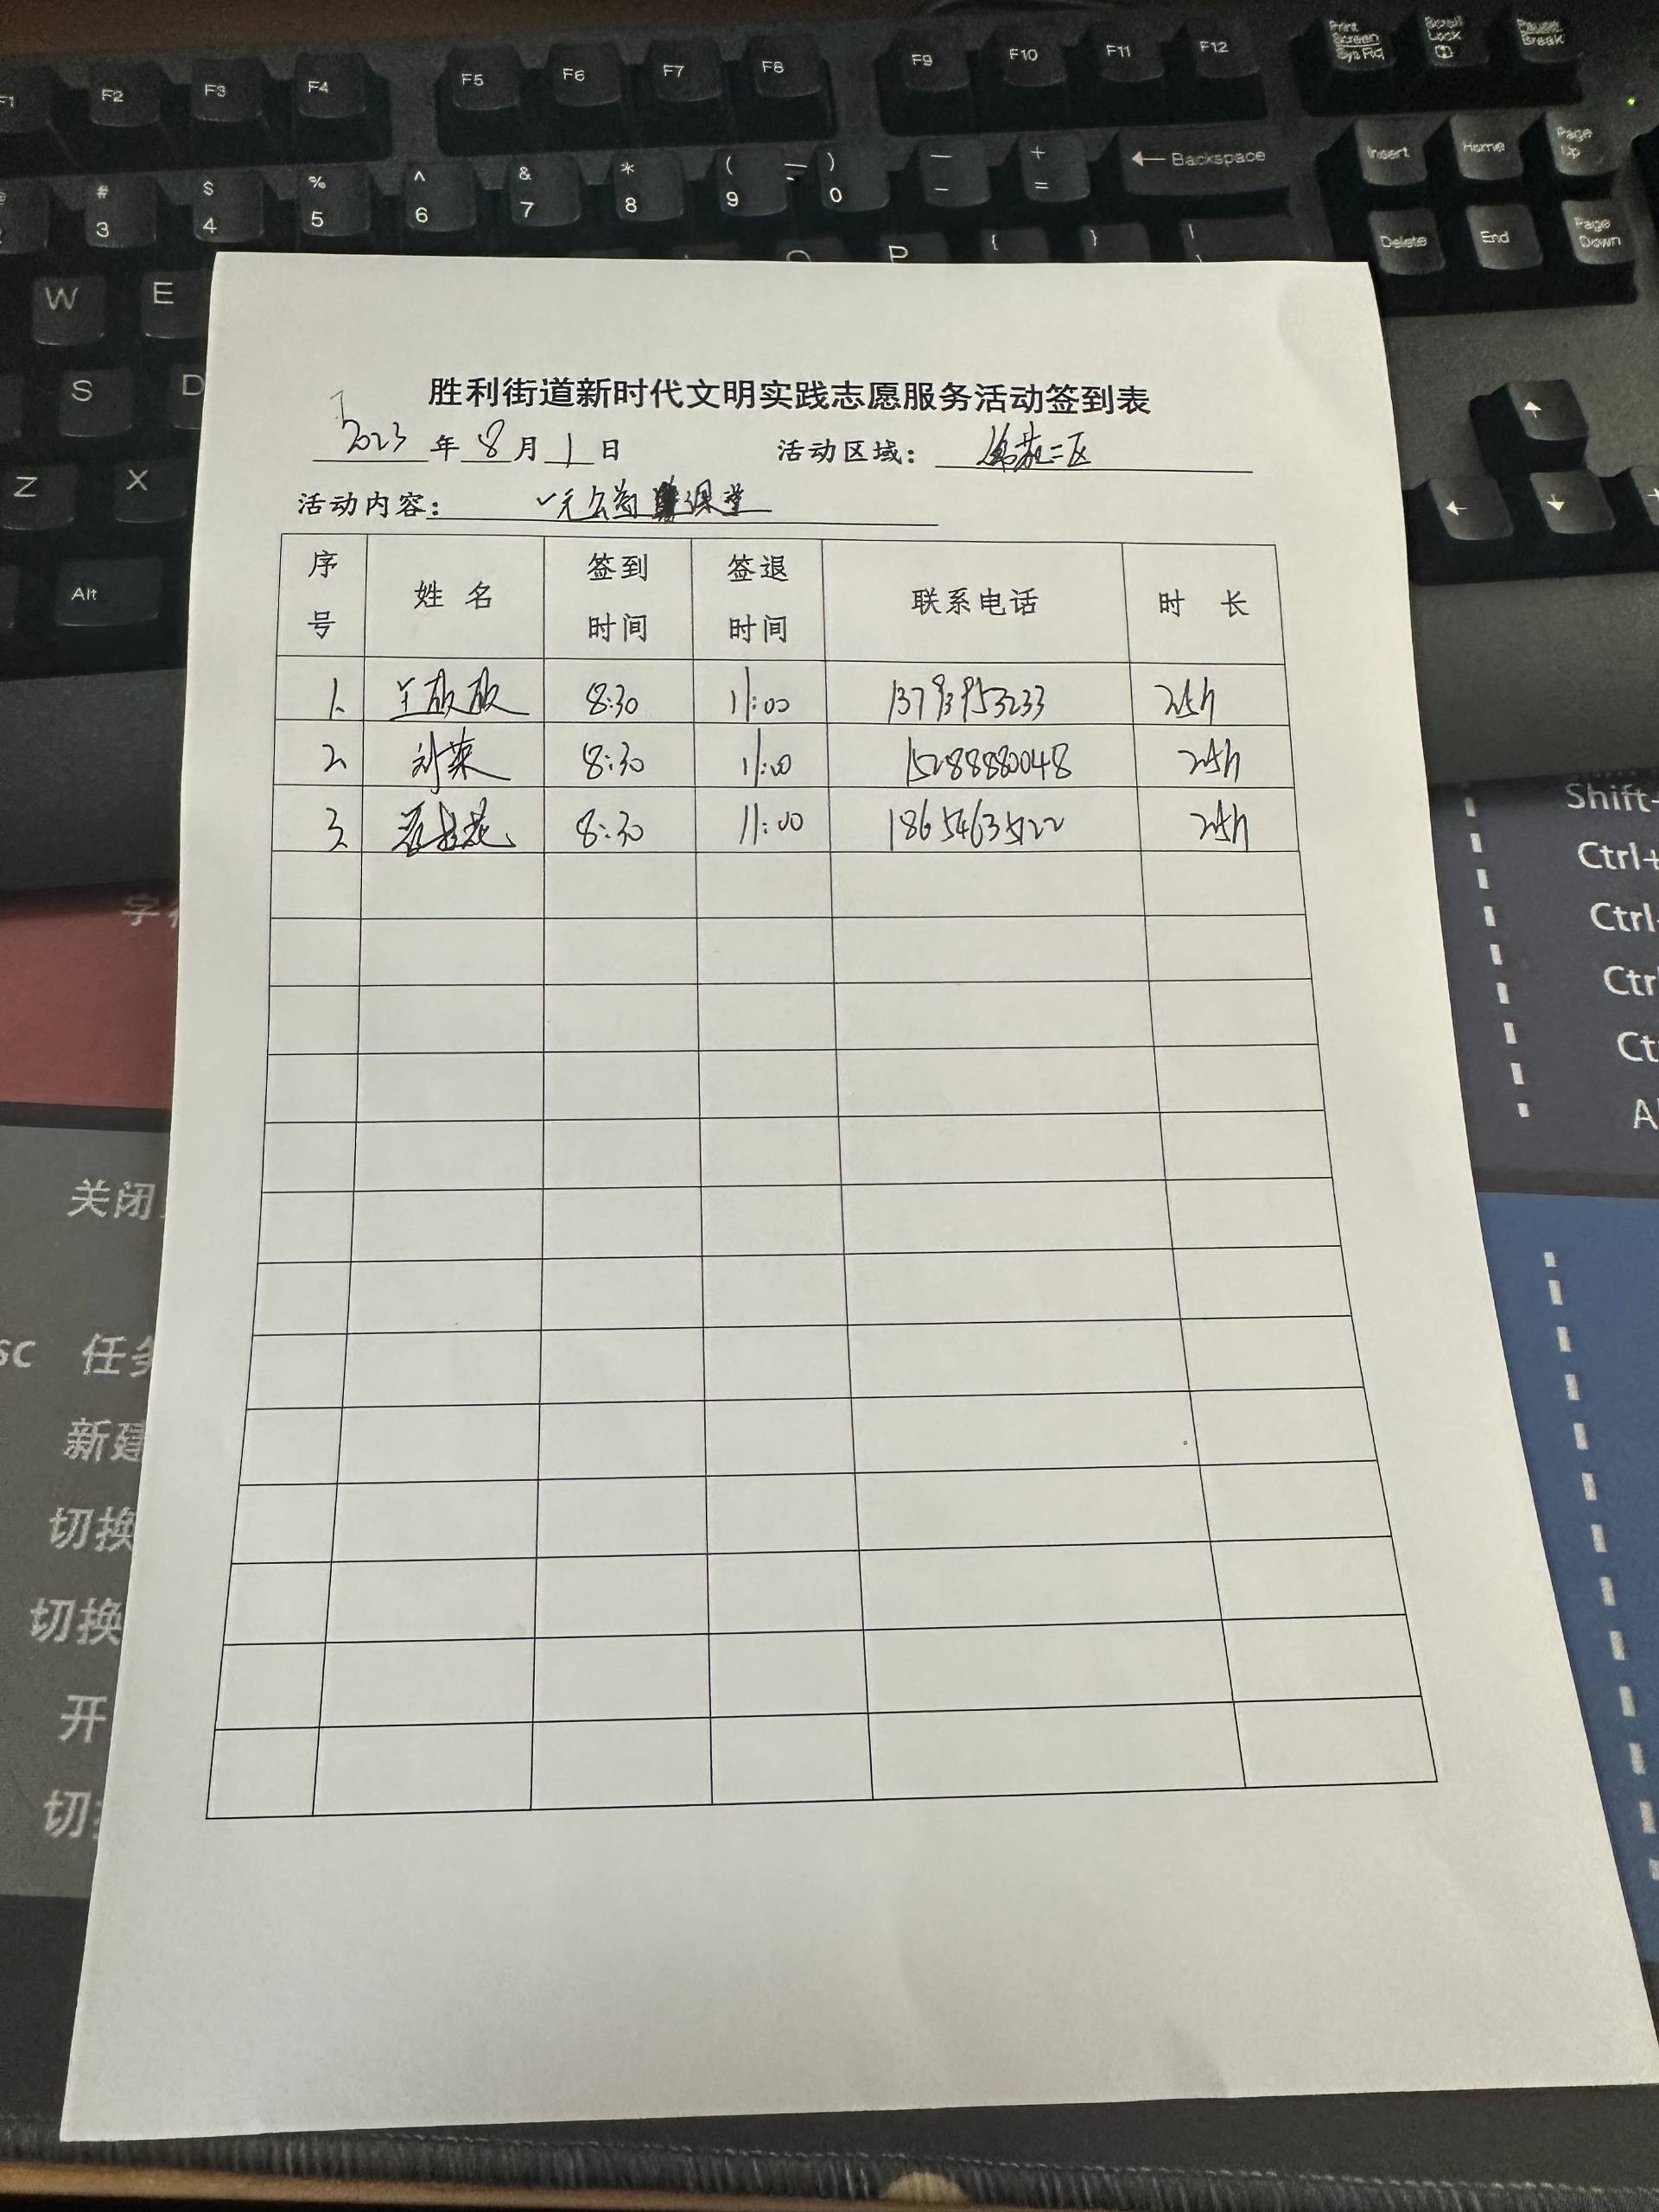 F1 F2 F3 F4 F5 F6 F7 F8 F9 F10 F11 F12 Print Screen SysRq Scroll Lock Pause Break
# 3 $ 4 % 5 ^ 6 & 7 * 8 ( 9 ) 0 — - + = ← Backspace Insert Home Page Up
W E O P { } | Delete End Page Down
S D
Z X
Alt
胜利街道新时代文明实践志愿服务活动签到表
2023 年 8 月 1 日 活动区域: 二区
活动内容: 一元公益课堂
序号 姓名 签到时间 签退时间 联系电话 时长
1. 8:30 11:00 13793953233 2.5h
2. 刘荣 8:30 11:00 15288880048 2.5h
3. 8:30 11:00 18654635122 2.5h
Shift+
Ctrl+
Ctrl+
Ctrl
Ct
关闭
任务
新建
切换
切换
开
切换